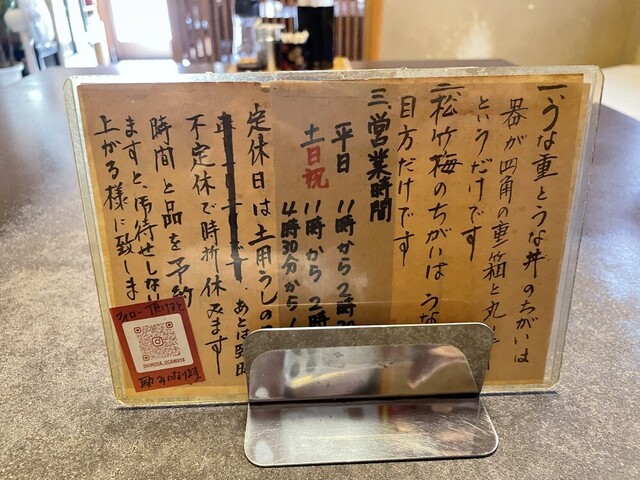 一、うな重とうな丼のちがいは
器が四角の重箱と丸い
というだけです
二、松竹梅のちがいは うな
目方だけです
三、営業時間
平日 11時から2時
土日祝 11時から2時
4時30分から
定休日は土用うしの
です。あとは
不定休で時折休みます
時間と品を予約
ますと、お待せしない
上がる様に致しま
フォロー頂けると
SHIMODA_OGAWAYA
励みになります